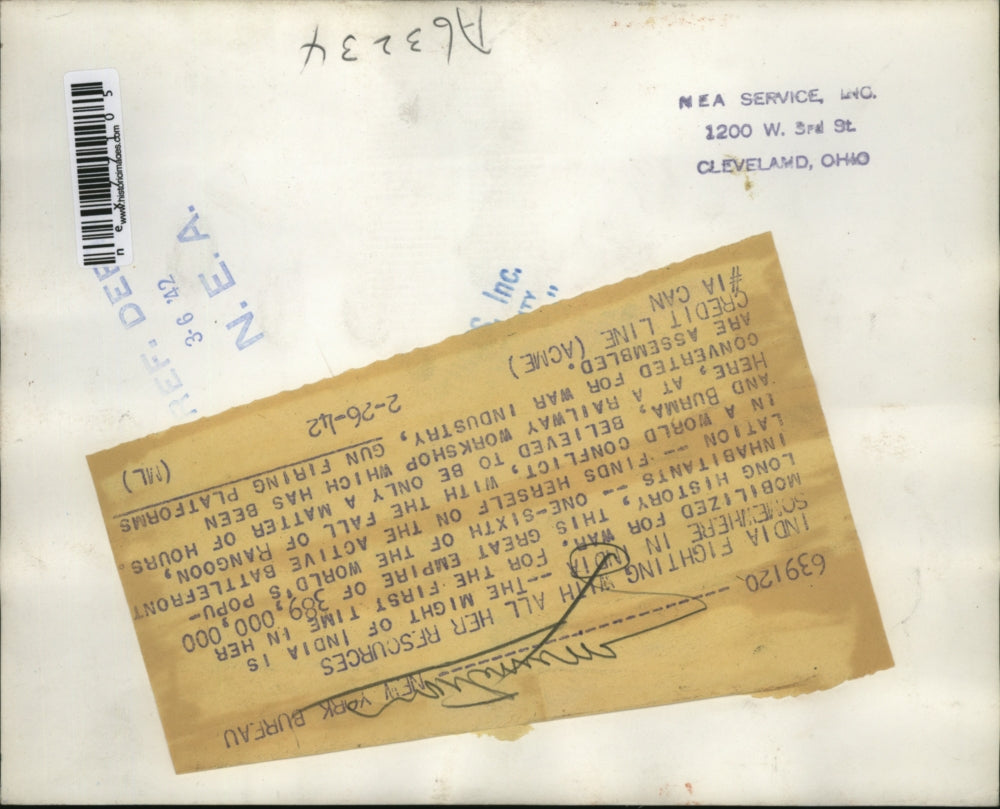 A63234
NEA SERVICE, INC.
1200 W. 3rd St.
CLEVELAND, OHIO
www.historicimages.com
REF. DEP
3-6 '42
N. E. A.
Inc.
639120
NEW YORK BUREAU
INDIA FIGHTING WITH ALL HER RESOURCES
SOMEWHERE IN INDIA --THE MIGHT OF INDIA IS
MOBILIZED FOR WAR. FOR THE FIRST TIME IN HER
LONG HISTORY, THIS GREAT EMPIRE OF 389,000,000
INHABITANTS -- ONE-SIXTH OF THE WORLD'S POPU-
LATION -- FINDS HERSELF ON THE ACTIVE BATTLEFRONT
IN A WORLD CONFLICT, WITH THE FALL OF RANGOON,
AND BURMA, BELIEVED TO BE ONLY A MATTER OF HOURS.
HERE, AT A RAILWAY WORKSHOP WHICH HAS BEEN
CONVERTED FOR WAR INDUSTRY, GUN FIRING PLATFORMS
ARE ASSEMBLED.
CREDIT LINE (ACME) 2-26-42 (ML)
#IA CAN